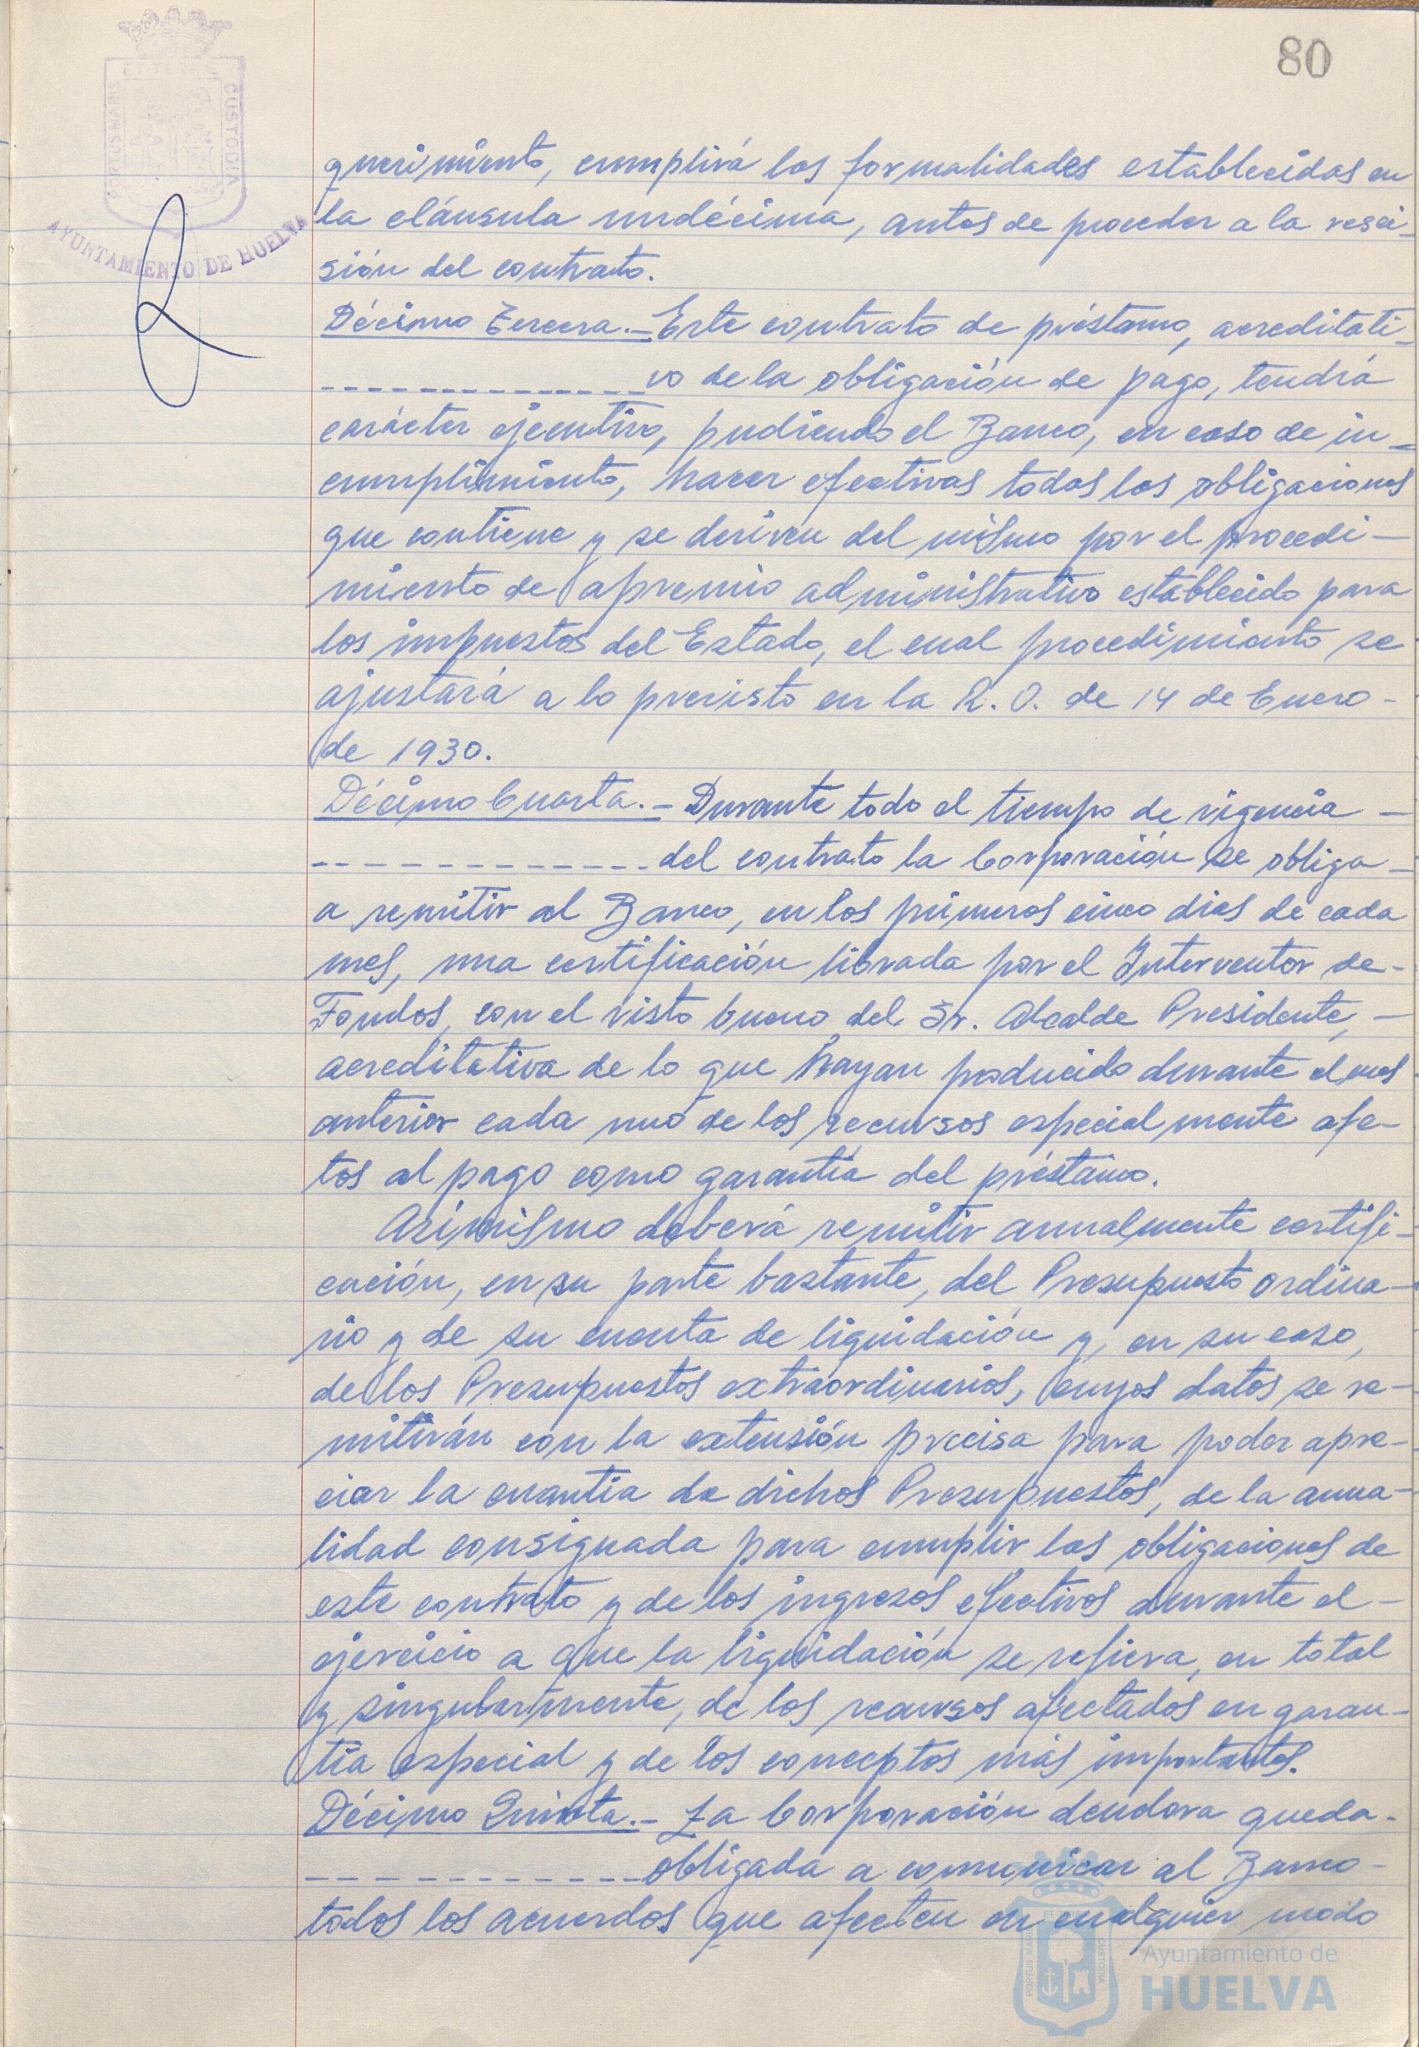 80
PORTUS MARIS
CUSTODIA
AYUNTAMIENTO DE HUELVA
querimiento, cumplirá las formalidades establecidas en
la cláusula undécima, antes de proceder a la resci-
sión del contrato.
Décimo Tercera.- Este contrato de préstamo, acreditati-
vo de la obligación de pago, tendrá
carácter ejecutivo, pudiendo el Banco, en caso de in-
cumplimiento, hacer efectivas todas las obligaciones
que contiene y se deriven del mismo por el procedi-
miento de apremio administrativo establecido para
los impuestos del Estado, el cual procedimiento se
ajustará a lo previsto en la R. O. de 14 de Enero -
de 1930.
Décimo Cuarta.- Durante todo el tiempo de vigencia -
del contrato la Corporación se obliga -
a remitir al Banco, en los primeros cinco dias de cada
mes, una certificación librada por el Interventor de -
Fondos, con el visto bueno del Sr. Alcalde Presidente, -
acreditativa de lo que hayan producido durante el mes
anterior cada uno de los recursos especialmente afe-
tos al pago como garantía del préstamo.
Asimismo deberá remitir anualmente certifi-
cación, en su parte bastante, del Presupuesto ordina-
rio y de su cuenta de liquidación y, en su caso,
de los Presupuestos extraordinarios, cuyos datos se re-
mitirán con la extensión precisa para poder apre-
ciar la cuantia de dichos Presupuestos, de la anua-
lidad consignada para cumplir las obligaciones de
este contrato y de los ingresos efectivos durante el -
ejercicio a que la liquidación se refiera, en total
y singularmente, de los recursos afectados en garan-
tia especial y de los conceptos más importantes.
Décimo Quinta.- La Corporación deudora queda -
obligada a comunicar al Banco -
todos los acuerdos que afecten en cualquier modo
PORTUS MARIS
CUSTODIA
Ayuntamiento de
HUELVA